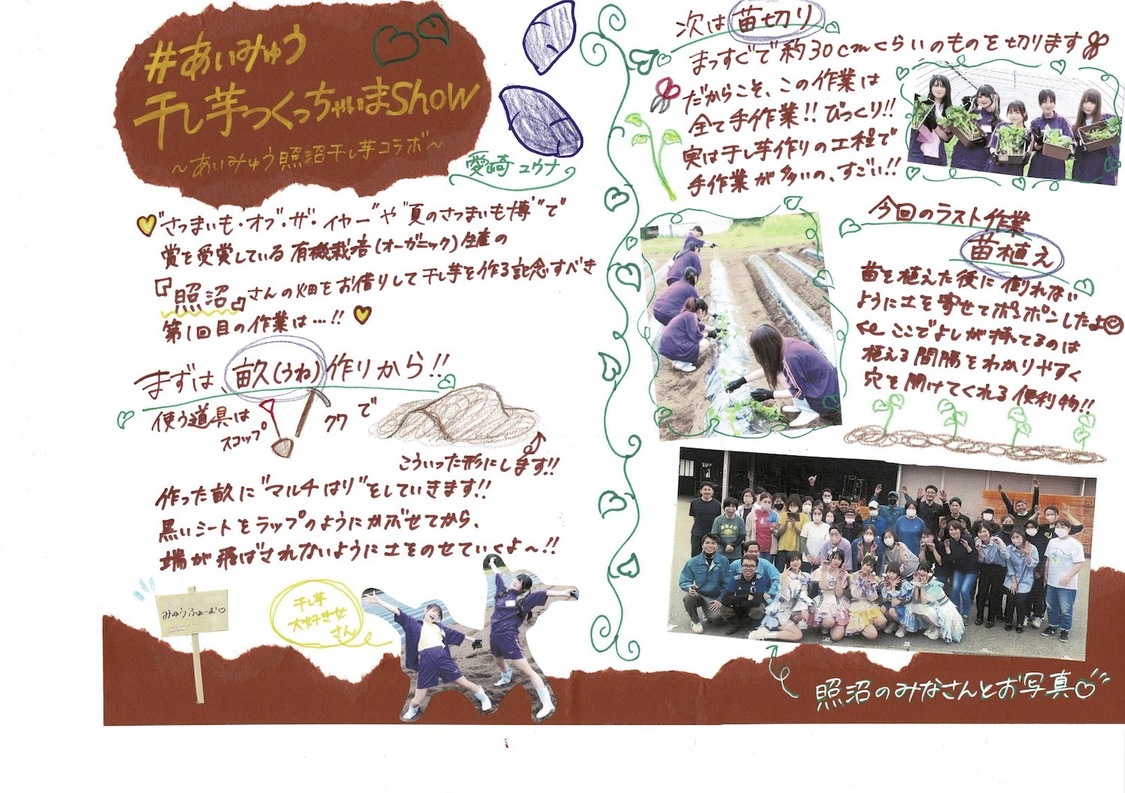 #あいみゅう
干し芋つくっちゃいまShow
～あいみゅう照沼干し芋コラボ～
愛崎 ユウナ
"さつまいも・オブ・ザ・イヤー"や"夏のさつまいも博"で
賞を受賞している有機栽培(オーガニック)生産の
『照沼』さんの畑をお借りして干し芋を作る記念すべき
第1回目の作業は…!!
まずは、畝(うね)作りから!!
使う道具は
スコップ
クワ で
こういった形にします!!
作った畝に"マルチはり"をしていきます!!
黒いシートをラップのようにかぶせてから、
端が飛ばされないように土をのせていくよ～!!
みゅうふぁーむ♡
干し芋
大好き女
さん
次は苗切り
まっすぐで約30cmくらいのものを切ります
だからこそ、この作業は
全て手作業!! びっくり!!
実は干し芋作りの工程で
手作業が多いの、すごい!!
今回のラスト作業
苗植え
苗を植えた後に倒れない
ように土を寄せてポンポンしたよ☺
ここでよしが持ってるのは
植える間隔をわかりやすく
穴を開けてくれる便利物!!
照沼のみなさんとお写真♡